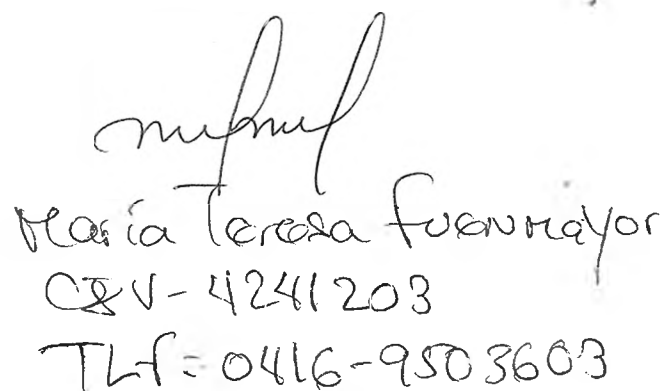 María Teresa Fuenmayor
CI V-4241203
TLf: 0416-9503603